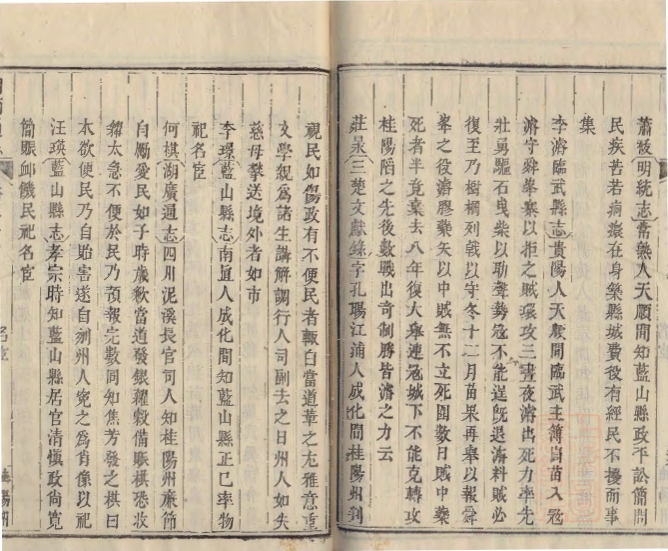 蕭敍明統志齊熊人天順間知藍山縣政平訟簡問
民疾苦若痌瘝在身築縣城費役有經民不擾而事
集
李濬臨武縣志貴陽人天順間臨武主簿自苗入冦
濬守舜峯寨以拒之賊環攻三晝夜濬出死力率先
壯勇驅石曳柴以助聲勢冦不能逞旣退濬料賊必
復至乃樹柵列㦸以守冬十二月苗果再舉以報舜
峯之役濬膠藥矢以中賊無不立死圍數日賊中藥
死者半竟棄去八年復大舉連冦城下不能克轉攻
桂陽陷之先後數戰出奇制勝皆濬之力云
莊泉三楚文獻錄字孔暘江浦人成化間桂陽州判
視民如傷政有不便民者輒白當道革之尤雅意重
文學親爲諸生講解調行人司副去之日州人如失
慈母拏送境外者如市
李璟藍山縣志南直人成化間知藍山縣正己率物
祀名宦
何棋湖廣通志四川泥溪長官司人知桂陽州廉節
自勵愛民如子時歲歉當道發銀糴穀備賑棋恐收
糴太急不便於民乃預報完數同知焦芳發之棋曰
本欲便民乃自貽害遂自刎州人寃之爲肖像以祀
汪瑛藍山縣志孝宗時知藍山縣居官清愼政尚寬
簡賑䘏饑民祀名宦
名宦
桂陽州